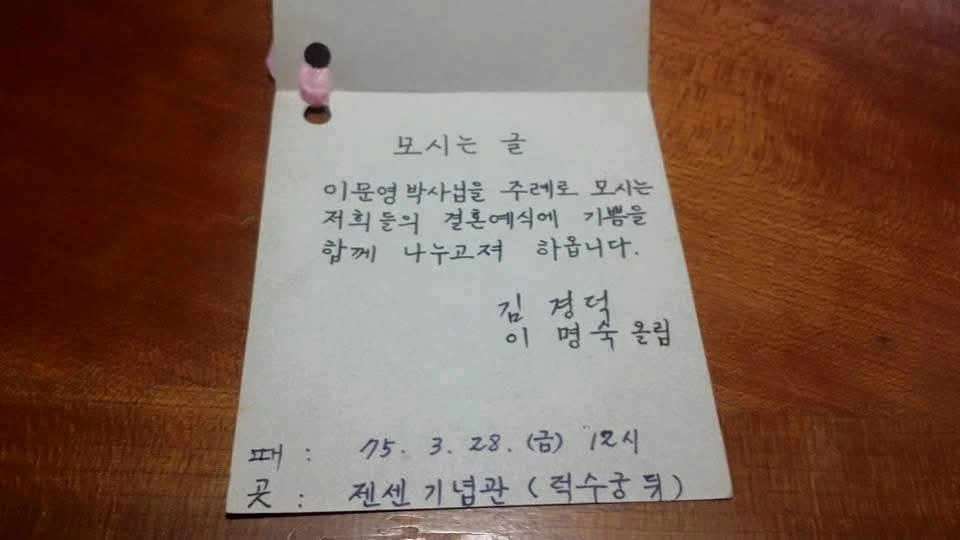 모시는 글
이문영 박사님을 주례로 모시는
저희들의 결혼예식에 기쁨을
함께 나누고져 하옵니다.
김 경덕
이 명숙 올림
때 : 75. 3. 28. (금) 12시
곳 : 젠센기념관 (덕수궁 뒤)